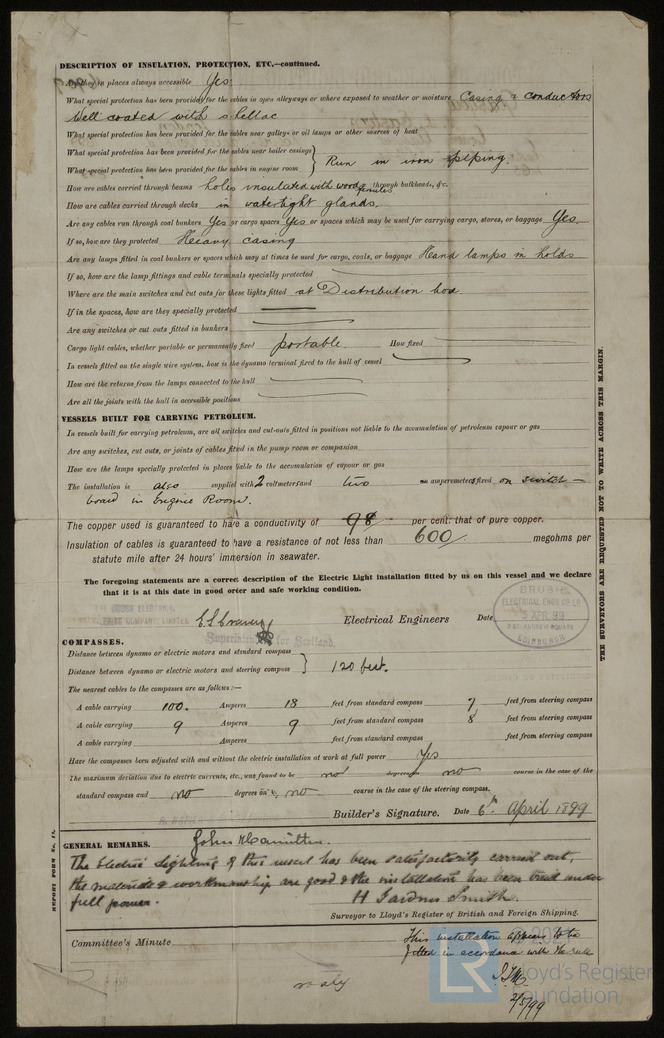 DESCRIPTION OF INSULATION, PROTECTION, ETC.—continued.
in places always accessible Yes
What special protection has been provided for the cables in open alleyways or where exposed to weather or moisture Casing & conductors
well coated with shellac
What special protection has been provided for the cables near galleys or oil lamps or other sources of heat
What special protection has been provided for the cables near boiler casings
What special protection has been provided for the cables in engine room } Run in iron piping.
How are cables carried through beams holes insulated with wood ferrules through bulkheads, &c.
How are cables carried through decks in watertight glands.
Are any cables run through coal bunkers Yes or cargo spaces Yes or spaces which may be used for carrying cargo, stores, or baggage Yes.
If so, how are they protected Heavy casing
Are any lamps fitted in coal bunkers or spaces which may at times be used for cargo, coals, or baggage Hand lamps in holds
If so, how are the lamp fittings and cable terminals specially protected
Where are the main switches and cut outs for these lights fitted at Distribution box
If in the spaces, how are they specially protected
Are any switches or cut outs fitted in bunkers
Cargo light cables, whether portable or permanently fixed portable How fixed
In vessels fitted on the single wire system, how is the dynamo terminal fixed to the hull of vessel
How are the returns from the lamps connected to the hull
Are all the joints with the hull in accessible positions
VESSELS BUILT FOR CARRYING PETROLEUM.
In vessels built for carrying petroleum, are all switches and cut-outs fitted in positions not liable to the accumulation of petroleum vapour or gas
Are any switches, cut outs, or joints of cables fitted in the pump room or companion
How are the lamps specially protected in places liable to the accumulation of vapour or gas
The installation is also supplied with 2 voltmeters and two amperemeters fixed on switch-
board in Engine Room.
The copper used is guaranteed to have a conductivity of 98 per cent. that of pure copper.
Insulation of cables is guaranteed to have a resistance of not less than 600 megohms per
statute mile after 24 hours' immersion in seawater.
The foregoing statements are a correct description of the Electric Light installation fitted by us on this vessel and we declare
that it is at this date in good order and safe working condition.
Electrical Engineers Date
BRUSH
ELECTRICAL ENG. CO LD
5 APR. 99
EDINBURGH
for Scotland.
COMPASSES.
Distance between dynamo or electric motors and standard compass
Distance between dynamo or electric motors and steering compass } 120 feet.
The nearest cables to the compasses are as follows:—
A cable carrying 100. Amperes 13 feet from standard compass 7 feet from steering compass
A cable carrying 9 Amperes 9 feet from standard compass 8 feet from steering compass
A cable carrying Amperes feet from standard compass feet from steering compass
Have the compasses been adjusted with and without the electric installation at work at full power Yes
The maximum deviation due to electric currents, etc., was found to be no degrees on no course in the case of the
standard compass and no degrees on no course in the case of the steering compass.
Builder's Signature. Date 6th April 1899
GENERAL REMARKS. John Hamilton.
The Electric Lighting of this vessel has been satisfactorily carried out,
the materials & workmanship are good & the installation has been tried under
full power. H Gardner Smith.
Surveyor to Lloyd's Register of British and Foreign Shipping.
Committee's Minute
This installation appears to be
fitted in accordance with the rules
2/5/99
REPORT FORM No. 11.
THE SURVEYORS ARE REQUESTED NOT TO WRITE ACROSS THIS MARGIN.
LR
Lloyd's Register
Foundation